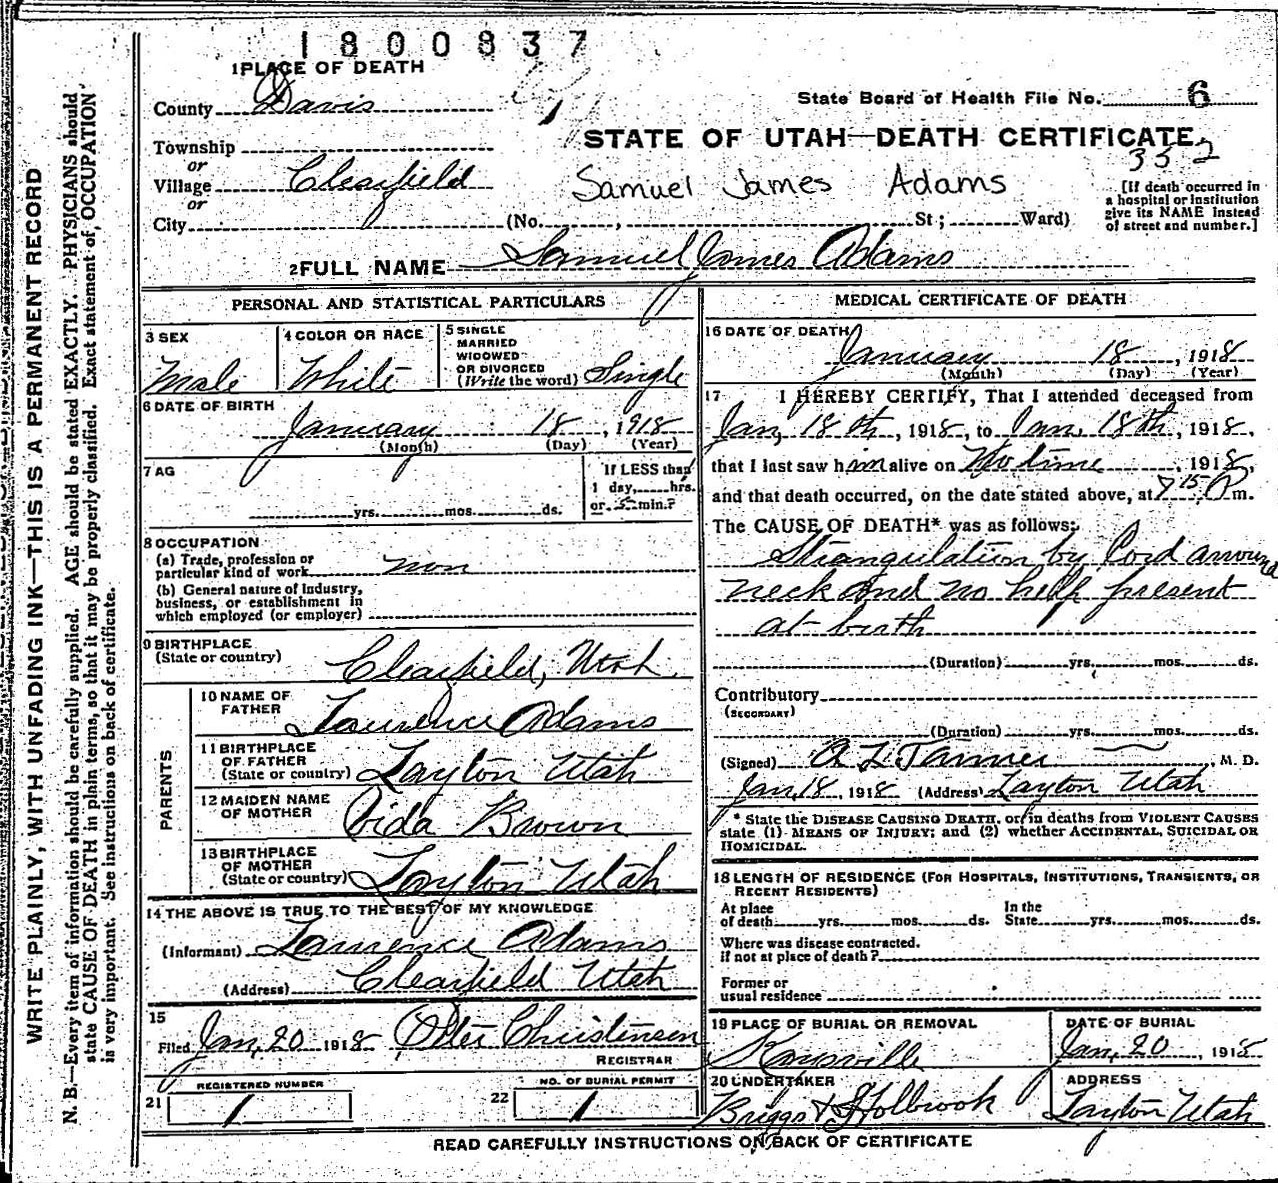 1800837
1 PLACE OF DEATH
County Davis
State Board of Health File No. 6
STATE OF UTAH—DEATH CERTIFICATE
352
Township
or
Village Clearfield
or
City
Samuel James Adams
(No. , St ; Ward)
[If death occurred in
a hospital or institution
give its NAME instead
of street and number.]
2 FULL NAME Samuel James Adams
PERSONAL AND STATISTICAL PARTICULARS
3 SEX
Male
4 COLOR OR RACE
White
5 SINGLE
MARRIED
WIDOWED
OR DIVORCED
(Write the word) Single
6 DATE OF BIRTH
January 18, 1918
(Month) (Day) (Year)
7 AG
yrs. mos. ds.
If LESS than
1 day, hrs.
or 5 min.?
8 OCCUPATION
(a) Trade, profession or
particular kind of work non
(b) General nature of Industry,
business, or establishment in
which employed (or employer)
9 BIRTHPLACE
(State or country) Clearfield, Utah
PARENTS
10 NAME OF
FATHER Lawrence Adams
11 BIRTHPLACE
OF FATHER
(State or country) Layton Utah
12 MAIDEN NAME
OF MOTHER Vida Brown
13 BIRTHPLACE
OF MOTHER
(State or country) Layton Utah
14 THE ABOVE IS TRUE TO THE BEST OF MY KNOWLEDGE
(Informant) Lawrence Adams
(Address) Clearfield Utah
15
Filed Jan, 20 1918 Peter Christensen
REGISTRAR
REGISTERED NUMBER
21 1
NO. OF BURIAL PERMIT
22 1
MEDICAL CERTIFICATE OF DEATH
16 DATE OF DEATH
January 18, 1918
(Month) (Day) (Year)
17 I HEREBY CERTIFY, That I attended deceased from
Jan, 18th, 1918, to Jan. 18th, 1918,
that I last saw him alive on No time, 1918,
and that death occurred, on the date stated above, at 7 15 P m.
The CAUSE OF DEATH* was as follows:
Strangulation by Cord around
neck and no help present
at birth
(Duration) yrs. mos. ds.
Contributory
(SECONDARY)
(Duration) yrs. mos. ds.
(Signed) A L Tanner, M. D.
Jan, 18 1918 (Address) Layton Utah
* State the DISEASE CAUSING DEATH, or in deaths from VIOLENT CAUSES
state (1) MEANS OF INJURY; and (2) whether ACCIDENTAL, SUICIDAL OR
HOMICIDAL.
18 LENGTH OF RESIDENCE (FOR HOSPITALS, INSTITUTIONS, TRANSIENTS, OR
RECENT RESIDENTS)
At place
of death yrs. mos. ds.
In the
State yrs. mos. ds.
Where was disease contracted.
if not at place of death?
Former or
usual residence
19 PLACE OF BURIAL OR REMOVAL
Kaysville
DATE OF BURIAL
Jan, 20, 1918
20 UNDERTAKER
Briggs & Holbrook
ADDRESS
Layton Utah
READ CAREFULLY INSTRUCTIONS ON BACK OF CERTIFICATE
WRITE PLAINLY, WITH UNFADING INK—THIS IS A PERMANENT RECORD
N. B.—Every item of information should be carefully supplied. AGE should be stated EXACTLY. PHYSICIANS should
state CAUSE OF DEATH in plain terms, so that it may be properly classified. Exact statement of OCCUPATION
is very important. See instructions on back of certificate.